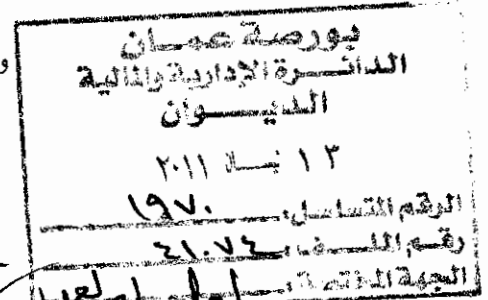 و
بورصة عمان
الدائرة الإدارية والمالية
الديوان
١٣ نيسان ٢٠١١
الرقم المتسلسل: ١٩٧٠
رقم الملف: ٤١٠٧٤
الجهة المختصة: